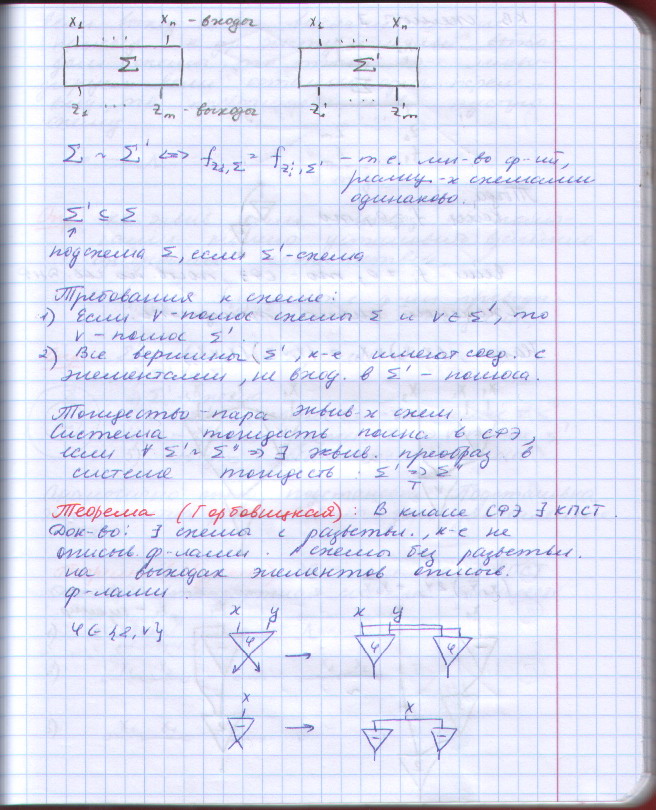 x₁ ... xₙ - входы x₁ ... xₙ
Σ Σ'
z₁ ... zₘ - выходы z₁' ... z'ₘ
Σ ~ Σ' <=> f_{zᵢ,Σ} = f_{zᵢ',Σ'} - т.е. мн-во ф-ий,
реализ-х схемами
одинаково.
Σ' ⊆ Σ
↑
подсхема Σ, если Σ'-схема
Требования к схеме:
1) Если v - полюс схемы Σ и v ∈ Σ', то
v - полюс Σ'.
2) Все вершины Σ', к-е имеют соед. с
элементами, не вход. в Σ' - полюса.
Тождество - пара эквив-х схем.
Система тождеств полна в СФЭ,
если ∀ Σ' ~ Σ'' => ∃ эквив. преобраз в
системе тождеств. Σ' => Σ''
T
Теорема (Горбовицкая): В классе СФЭ ∃ КПСТ.
Док-во: ∃ схемы с разветвл., к-е не
описыв. ф-лами. схемы без разветвл.
на выходах элементов описыв.
ф-лами.
x y x y
φ ∈ {&, ∨} φ → φ φ
x x
− → − −